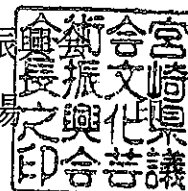 宮崎県議
会文化芸
術振興会
会長之印